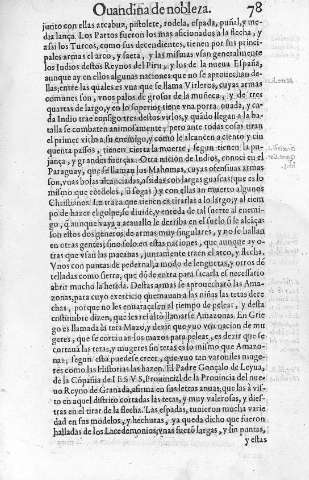 Ouandiña de nobleza. 78
junto con ellas arcabuz, pistolete, rodela, espada, puñal, y me-
dia lança. Los Partos fueron los mas aficionados a la flecha, y
assi los Turcos, como sus decendientes, tienen por sus princi-
pales armas el arco, y saeta, y las mismas vsan generalmente
los Indios destos Reynos del Piru, y los de la nueua España,
aunque ay en ellos algunas naciones que no se aprouechan de-
llas, entre las quales es vna que se llama Vitleros, cuyas armas
comunes son, vnos palos de grosor de la muñeca, y de tres
quartas de largo, y en lo superior tiene vna porra
ca Indio trae consigo tres destos y quãdo llegan a la ba-
talla se combaten animosamente, pero ante todas cosas tiran
el primer a su enemigo, y como le alcancen a ciento y cin
quenta passos, tienen cierta la muerte, segun tienen la pu-
jança, y grandes fuerças. Otra nacion de Indios, conoci en el
Paraguay, que se llaman los Mahomas, cuyas ofensiuas armas
son, vnas bolas alcançadas, asidas con largas guascas (que es lo
mismo que cordeles, ò sogas) y con ellas han muerto algunos
Christianos. La traza que tienen es tirarlas a lo largo, y al tiem
po de hazer el golpe, se diuide, y enreda de tal suerte al enemi-
go, q̃ aunque vaya a cauallo le derriba en el suelo si le alcãça;
son estos dos generos de armas muy singulares, y no se hallan
en otras gentes, sino solo en estas naciones, que aunque ay o-
tras que vsan las macanas, juntamente traen el arco, y flecha.
Vnos con puntas de pedernal, a modo de lenguetas, y otros de
telladas como sierra, que dõ de entra para sacarla es necessario
abrir mucho la herida. Destas armas se aprouecharõ las Ama-
zonas, para cuyo exercicio quemauan a las niñas las tetas dere
chas, porque no les embaraçassen al tiempo de pelear, y desta
costumbre dizen, que les resultò llamarse Amazonas. En Grie
go es llamada la teta Mazo, y dezir que vuo vna nacion de mu
geres, que se cortauan los mazos para pelear, es dezir que se
cortauã las tetas, y mugeres sin tetas es lo mismo que Amazo-
nas, segun esto puedese creer, que vuo tan varoniles muge-
res como las Historias las hazen. El Padre Gonçalo de Leyua,
de la Cõpañia del I E S V S, Prouincial de la Prouincia del nue
uo Reyno de Granada, afirma en sus letras annuas, que las à vis-
to en aquel distrito cortadas las tetas, y muy valerosas, y dies-
tras en el tirar de la flecha. Las espadas, tuuieron mucha varie
dad en sus modelos, y hechuras, ya queda dicho que fueron
halladas de los Lacedemonios, vnas fuerõ largas, y sin puntas,
y estas